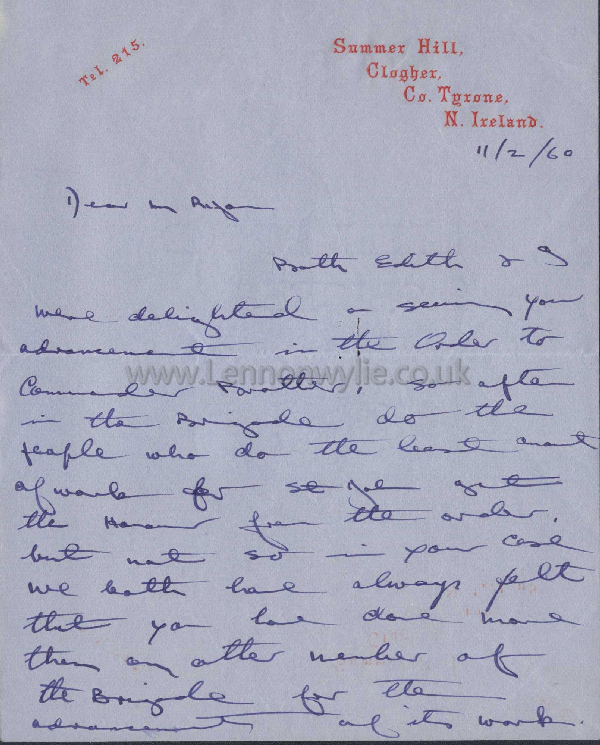 Tel. 215.
Summer Hill,
Clogher,
Co. Tyrone,
N. Ireland.
11/2/60
Dear Mr
Both Edith & I
were delighted on seeing your
advancement in the Order to
Commander Brother, so often
in the Brigade do the
people who do the least amount
of work for St Joh get
the Honour from the order,
but not so in your case
we both have always felt
that you have done more
then any other member of
the Brigade for the
advancement of its work.
www.Lennonwylie.co.uk